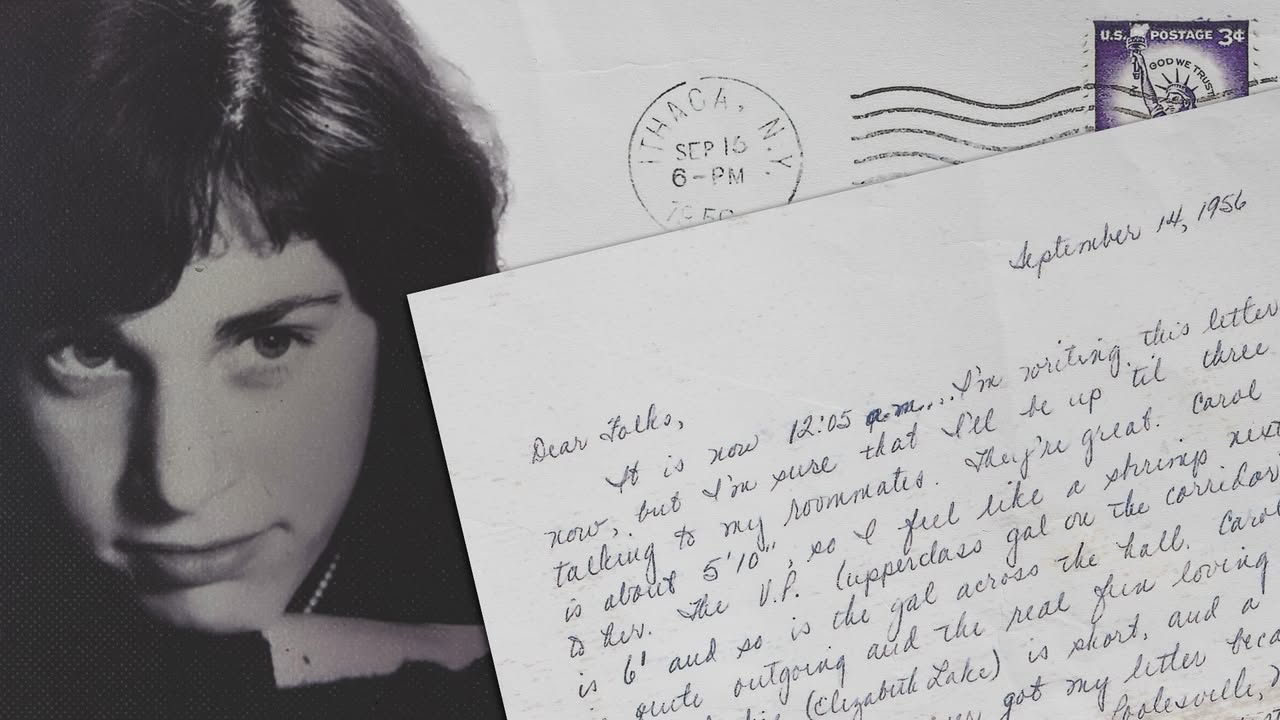 U.S. POSTAGE 3¢
IN GOD WE TRUST
ITHACA, N.Y.
SEP 15
6-PM
September 14, 1956
Dear Folks,
It is now 12:05 a.m... I'm writing this letter
now, but I'm sure that I'll be up til three
talking to my roommates. They're great. Carol
is about 5'10", so I feel like a shrimp next
to her. The V.P. (upperclass gal on the corridor)
is 6' and so is the gal across the hall. Carol
is quite outgoing and the real fun loving
(Elizabeth Lake) is short, and a
got my letter
Poolesville,